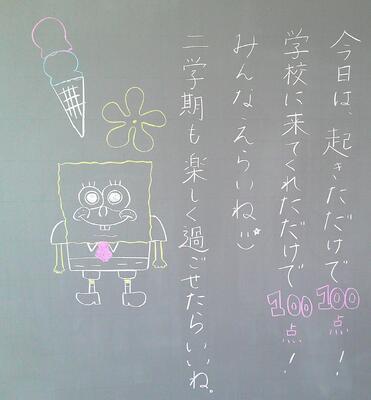 今日は、起きただけで100点！
学校に来てくれただけで100点！
みんなえらいね
二学期も楽しく過ごせたらいいね。